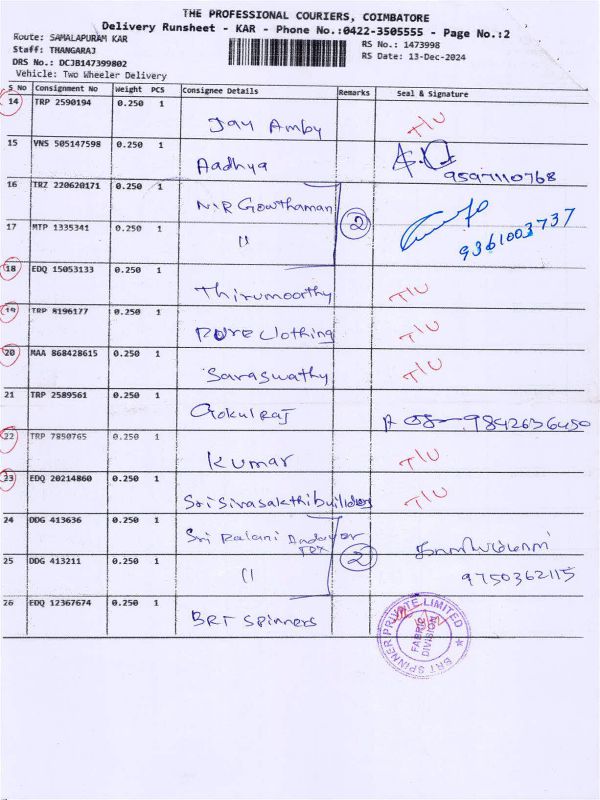 THE PROFESSIONAL COURIERS, COIMBATORE
Delivery Runsheet - KAR - Phone No.:0422-3505555 - Page No.:2
Route: SAMALAPURAM KAR
Staff: THANGARAJ
DRS No.: DCJB147399802
Vehicle: Two Wheeler Delivery
RS No.: 1473998
RS Date: 13-Dec-2024
S No Consignment No Weight PCS Consignee Details Remarks Seal & Signature
14 TRP 2590194 0.250 1 Jay Amby T/U
15 VNS 505147598 0.250 1 Aadhya 9597110768
16 TRZ 220620171 0.250 1 N.R Gowthaman 2
17 MTP 1335341 0.250 1 11 9361003737
18 EDQ 15053133 0.250 1 Thirumoorthy T/U
19 TRP 8196177 0.250 1 Pure Clothing T/U
20 MAA 868428615 0.250 1 Saraswathy T/U
21 TRP 2589561 0.250 1 Gokulraj 9842636450
22 TRP 7850765 0.250 1 Kumar T/U
23 EDQ 20214860 0.250 1 Sri Sivasakthi builders T/U
24 DDG 413636 0.250 1 Sri Palani Andavar Tex 2
25 DDG 413211 0.250 1 11 9750362115
26 EDQ 12367674 0.250 1 BRT Spinners
BRT SPINNER PRIVATE LIMITED
FABRIC
DIVISION